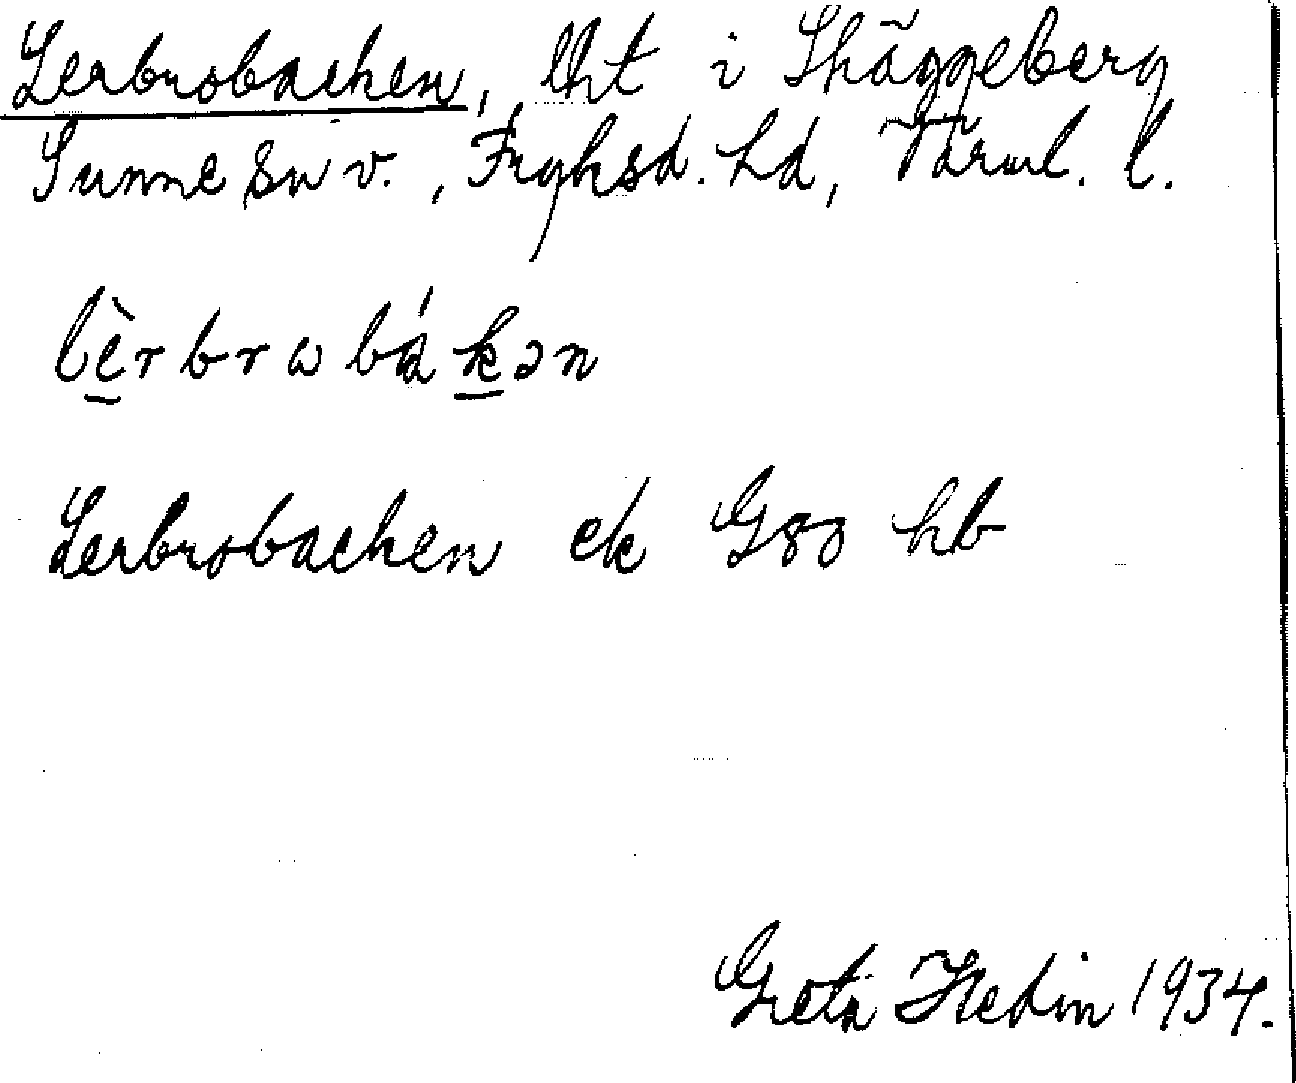 Lerbrobacken, lht i Skäggeberg
Sunne sn v., Fryksd. hd, Värml. l.
lèrbrωbákən
Lerbrobacken ek G80 hb
Greta Hedin 1934.